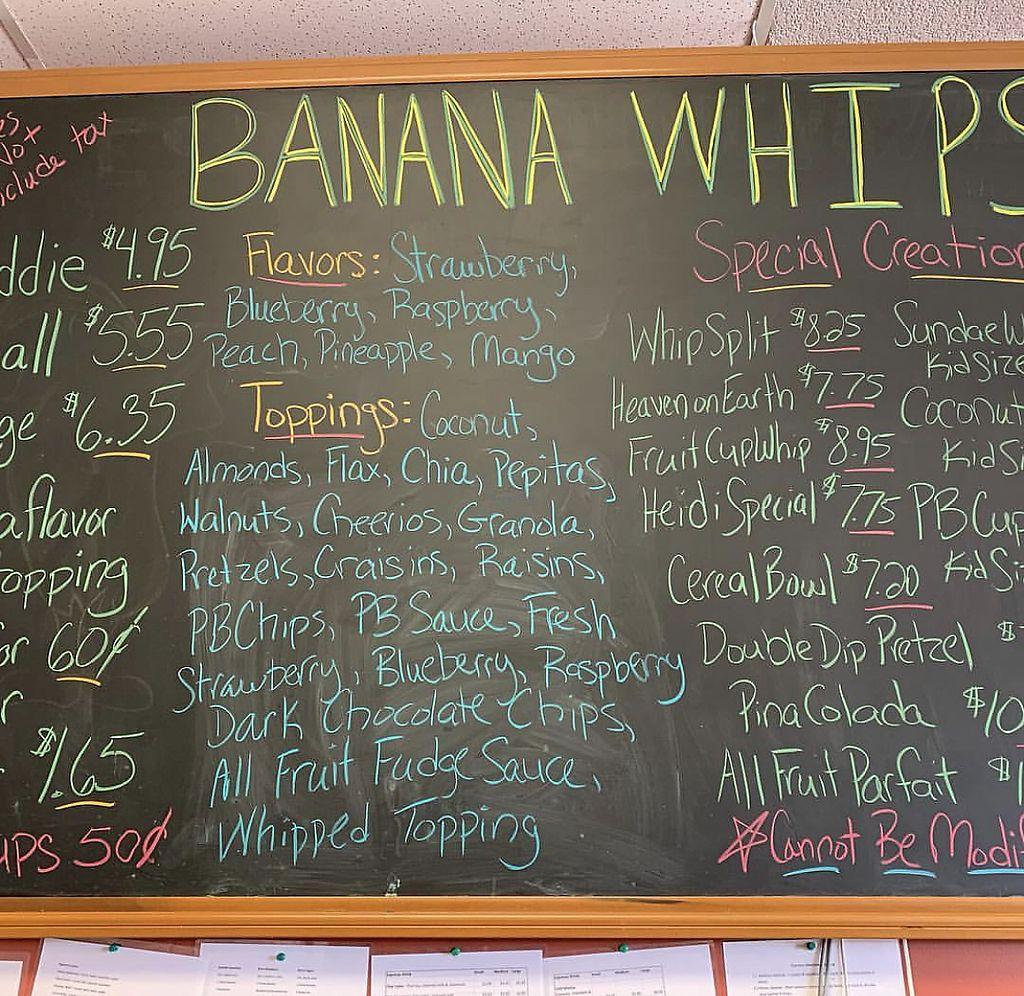 BANANA WHIPS
Not
include tax
$4.95
$5.55
$6.35
flavor
topping
60¢
$1.65
50¢
Flavors: Strawberry,
Blueberry, Raspberry,
Peach, Pineapple, Mango
Toppings: Coconut,
Almonds, Flax, Chia, Pepitas,
Walnuts, Cheerios, Granola,
Pretzels, Craisins, Raisins,
PB Chips, PB Sauce, Fresh
Strawberry, Blueberry, Raspberry
Dark Chocolate Chips,
All Fruit Fudge Sauce,
Whipped Topping
Special Creation
Whip Split $8.25
Heaven on Earth $7.75
Fruit Cup Whip $8.95
Heidi Special $7.75
Cereal Bowl $7.20
Double Dip Pretzel $
Pina Colada $10
All Fruit Parfait $1
Sundae W
Kid Size
Coconut
Kid Si
PB Cup
Kid Si
☆Cannot Be Modi